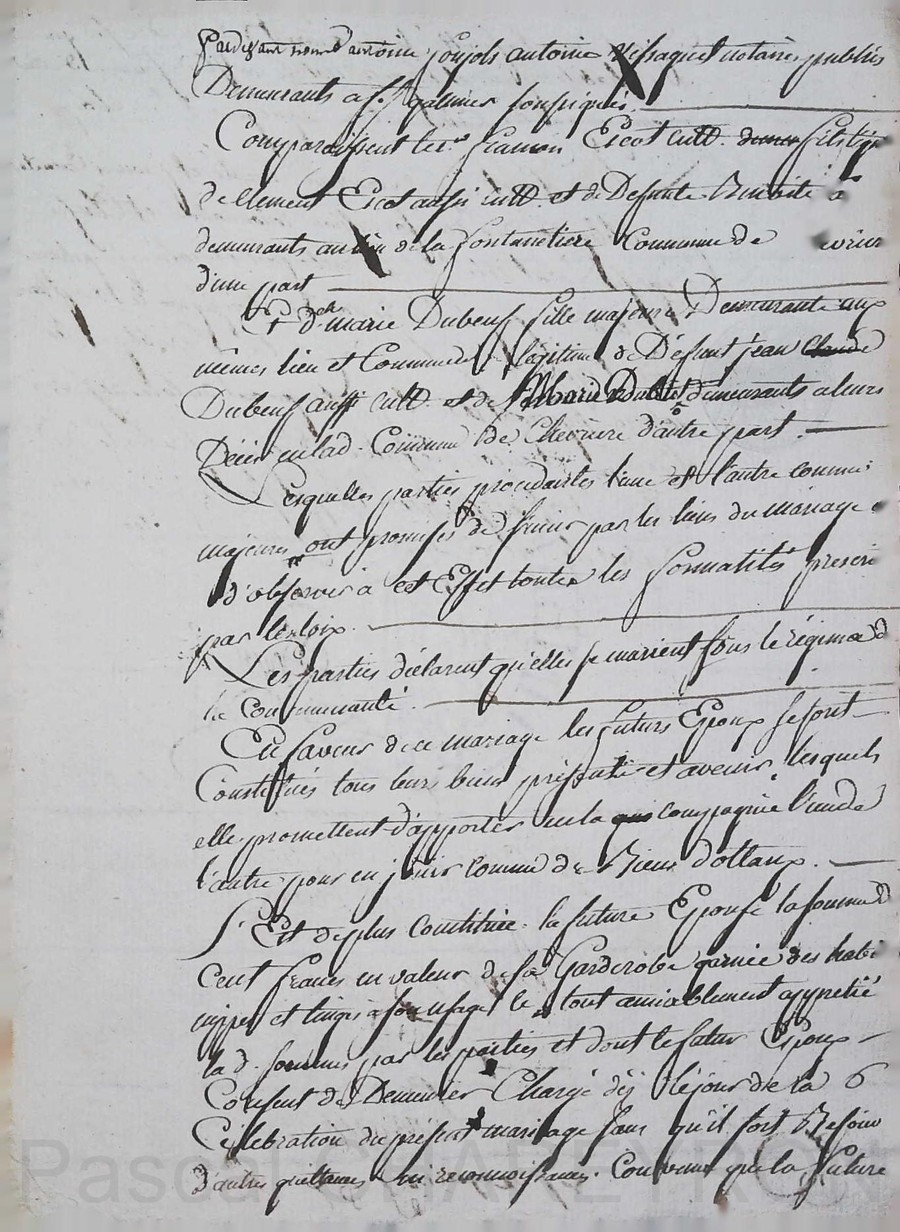 Pardevant nous antoine joujols antoine notaires publics
Demeurants a st galmier soussignés
Comparoissent le cer Eicot cult. fils
de Clement Eicot aussi cult et de Defunte Benoite
demeurants au lieu de la fontanetiere Commune de
d'une part
Et dlle marie Dubeuf fille majeure Demeurante aux
mêmes lieu et Commune legitime de Défunt jean Claude
Dubeuf aussi cult. et de Marie demeurants a leurs
Décès en lad. Commune de Chevriere d'autre part.
Lesquelles parties procedantes l'une et l'autre comme
majeures ont promises de s'unir par les liens du mariage
d'observer a cet Effet toutes les formalités prescri
par les loix.
Les parties déclarent qu'elles se marient sous le régime d
la Communauté.
En faveur de ce mariage les futurs Epoux se sont
Constitués tous leurs biens présents et avenir, lesquels
elle promettent d'apporter en la compagnie l'un de
l'autre pour en jouir comme de Biens dottaux.
S'Est de plus Constituée la future Epouse la somme d
Cent francs en valeur de sa Garderobe garnie des habi
nippes et linges a son usage le tout amiablement apprétié
la d. somme par les parties et dont le futur Epoux
Consent de Demeurer Chargé dès le jour de la
Célébration du présent mariage sans qu'il soit Besoin
d'autres quittances ni reconnoissances. Convenu que la future
Pascal CHAREYRON